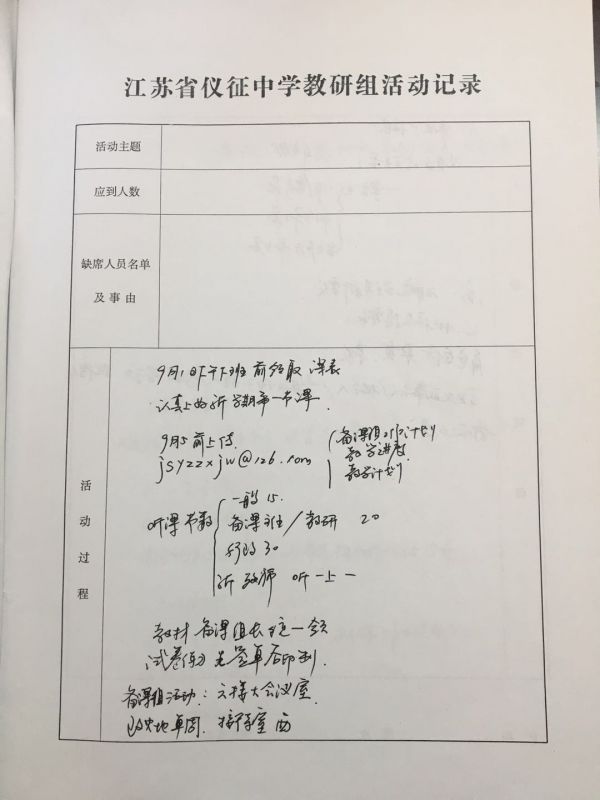 江苏省仪征中学教研组活动记录
活动主题
应到人数
缺席人员名单
及事由
活动过程
9月1日下午下班前领取课表
认真上好新学期第一节课.
9月5前上传.
jsyzzxjw@126.com
备课组工作计划
教学进度
教学计划
听课节数
一般 15.
备课组/教研 20
行政 30
新教师 听一上一
教材 备课组长统一领
试卷 先签单后印刷.
备课组活动:六楼大会议室.
单周. 接待室 西